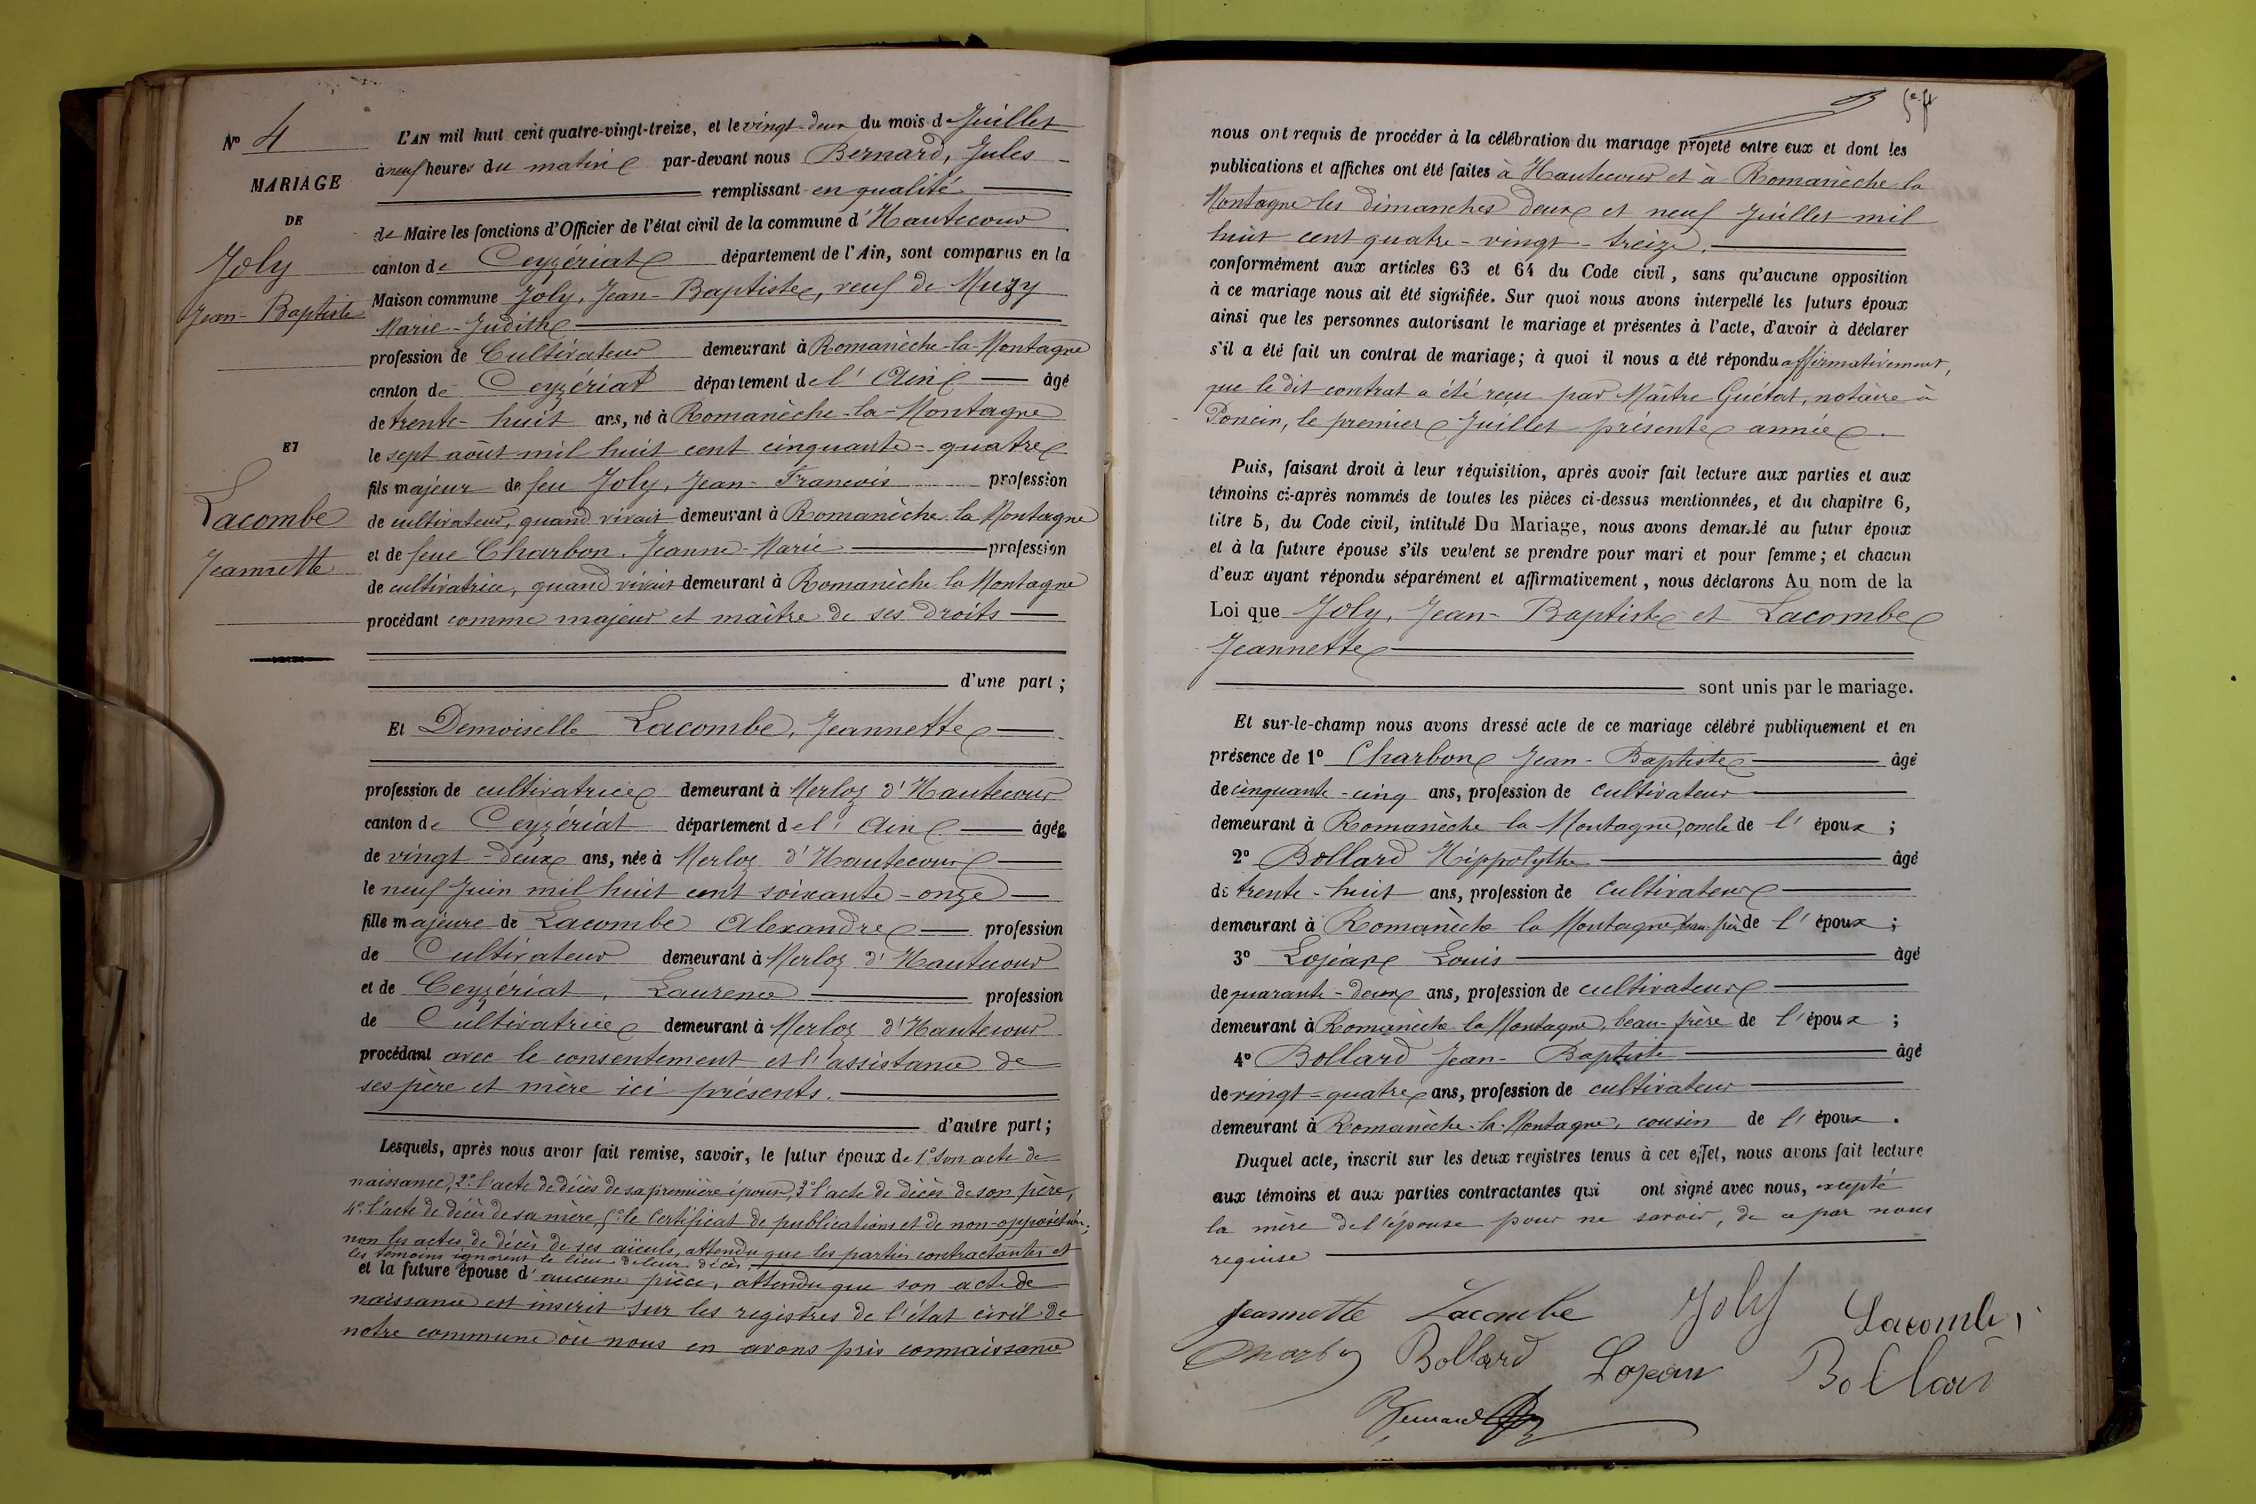 Nº 4
MARIAGE
DE
Joly
Jean-Baptiste
ET
Lacombe
Jeannette
L'AN mil huit cent quatre-vingt-treize, et le vingt-deux du mois de Juillet
à neuf heures du matin par-devant nous Bernard, Jules
remplissant en qualité
de Maire les fonctions d'Officier de l'état civil de la commune d'Hautecour
canton de Ceyzériat département de l'Ain, sont comparus en la
Maison commune Joly, Jean-Baptiste, veuf de Muzy
Marie-Judith
profession de Cultivateur demeurant à Romanèche-la-Montagne
canton de Ceyzériat département de l'Ain âgé
de trente-huit ans, né à Romanèche-la-Montagne
le sept août mil huit cent cinquante-quatre
fils majeur de feu Joly, Jean-Francois profession
de cultivateur, quand vivait demeurant à Romanèche la Montagne
et de feue Charbon, Jeanne-Marie profession
de cultivatrice, quand vivait demeurant à Romanèche la Montagne
procédant comme majeur et maître de ses droits
d'une part ;
Et Demoiselle Lacombe, Jeannette
profession de cultivatrice demeurant à Merloz d'Hautecour
canton de Ceyzériat département de l'Ain âgée
de vingt-deux ans, née à Merloz d'Hautecour
le neuf Juin mil huit cent soixante-onze
fille majeure de Lacombe Alexandre profession
de Cultivateur demeurant à Merloz d'Hautecour
et de Ceyzériat, Laurence profession
de Cultivatrice demeurant à Merloz d'Hautecour
procédant avec le consentement et l'assistance de
ses père et mère ici présents.
d'autre part ;
Lesquels, après nous avoir fait remise, savoir, le futur époux de 1º son acte de
naissance, 2º l'acte de décès de sa première épouse, 3º l'acte de décès de son père,
4º l'acte de décès de sa mère, 5º le certificat de publications et de non-opposition,
non les actes de décès de ses aïeuls, attendu que les parties contractantes et
les témoins ignorent le lieu de leur décès,
et la future épouse d'aucune pièce, attendu que son acte de
naissance est inscrit sur les registres de l'état civil de
notre commune où nous en avons pris connaissance
nous ont requis de procéder à la célébration du mariage projeté entre eux et dont les
publications et affiches ont été faites à Hautecour et à Romanèche-la
Montagne les dimanches deux et neuf Juillet mil
huit cent quatre-vingt-treize,
conformément aux articles 63 et 64 du Code civil, sans qu'aucune opposition
à ce mariage nous ait été signifiée. Sur quoi nous avons interpellé les futurs époux
ainsi que les personnes autorisant le mariage et présentes à l'acte, d'avoir à déclarer
s'il a été fait un contrat de mariage ; à quoi il nous a été répondu affirmativement,
que le dit contrat a été reçu par Maître Guétat, notaire à
Poncin, le premier Juillet présente année.
Puis, faisant droit à leur réquisition, après avoir fait lecture aux parties et aux
témoins ci-après nommés de toutes les pièces ci-dessus mentionnées, et du chapitre 6,
titre 5, du Code civil, intitulé Du Mariage, nous avons demandé au futur époux
et à la future épouse s'ils veulent se prendre pour mari et pour femme ; et chacun
d'eux ayant répondu séparément et affirmativement, nous déclarons Au nom de la
Loi que Joly, Jean-Baptiste et Lacombe
Jeannette
sont unis par le mariage.
Et sur-le-champ nous avons dressé acte de ce mariage célébré publiquement et en
présence de 1º Charbon Jean-Baptiste âgé
de cinquante-cinq ans, profession de cultivateur
demeurant à Romanèche la Montagne, oncle de l'époux ;
2º Bollard Hippolythe âgé
de trente-huit ans, profession de cultivateur
demeurant à Romanèche la Montagne, beau-frère de l'époux ;
3º Lojean Louis âgé
de quarante-deux ans, profession de cultivateur
demeurant à Romanèche la Montagne, beau-frère de l'époux ;
4º Bollard Jean-Baptiste âgé
de vingt-quatre ans, profession de cultivateur
demeurant à Romanèche-la-Montagne, cousin de l'époux.
Duquel acte, inscrit sur les deux registres tenus à cet effet, nous avons fait lecture
aux témoins et aux parties contractantes qui ont signé avec nous, excepté
la mère de l'épouse pour ne savoir, de ce par nous
requise
Jeannette Lacombe Joly Lacombe
Charbon Bollard Lojean Bollard
Bernard